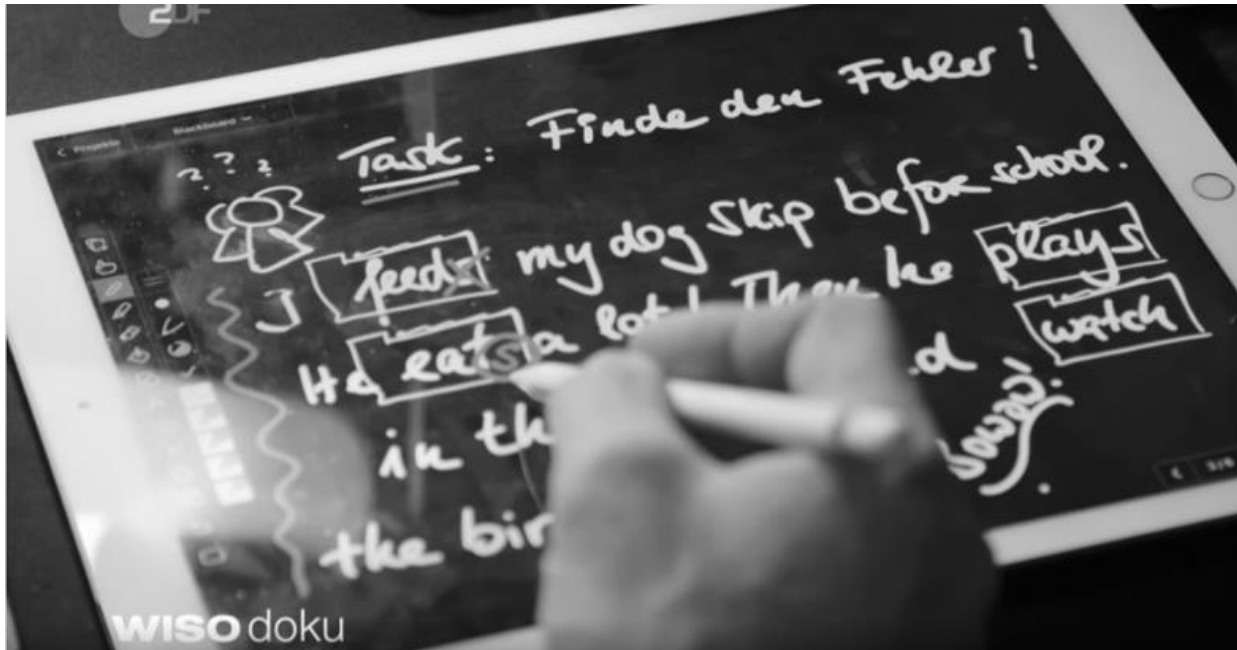 ZDF
< Projekte
Blackboard
? ? ?
Task: Finde den Fehler!
I feeds my dog Skip before school.
He eats a lot! Then he plays
in th d watch
the bir
3/6
WISO doku